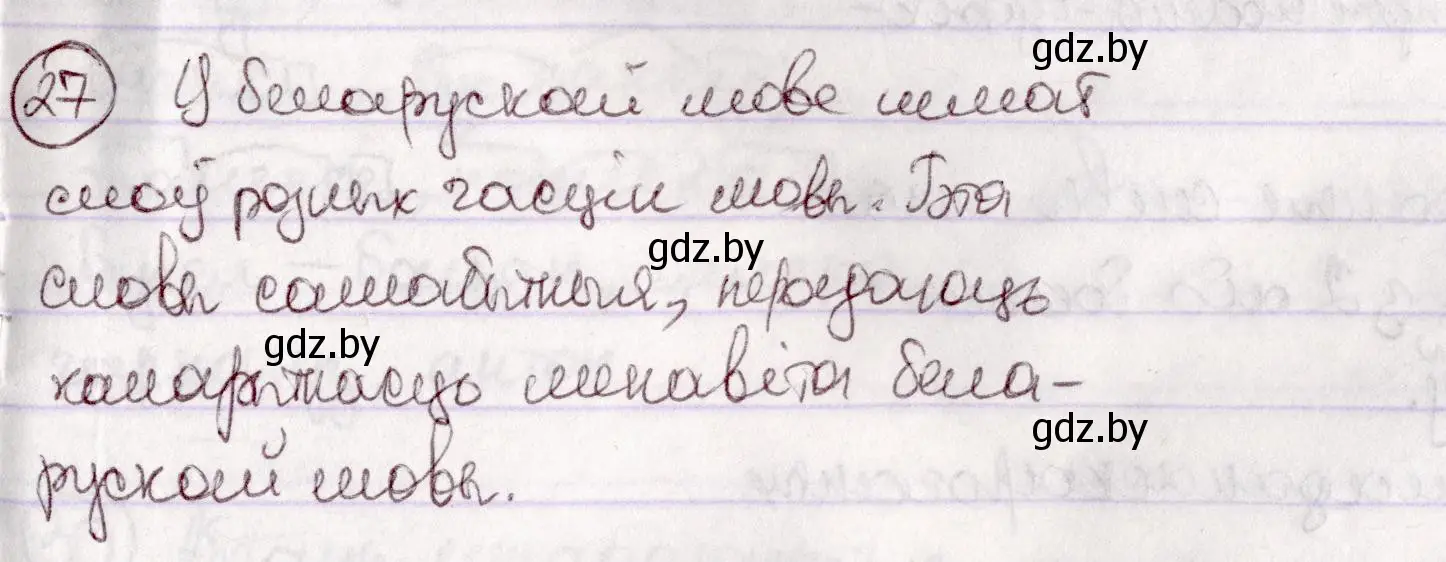 gdz.by
27 У беларускай мове шмат
слоў розных часцін мовы. Гэта
gdz.by
словы самабытныя, перадаюць
gdz.by
каларытнасць менавіта бела-
gdz.by
рускай мовы.